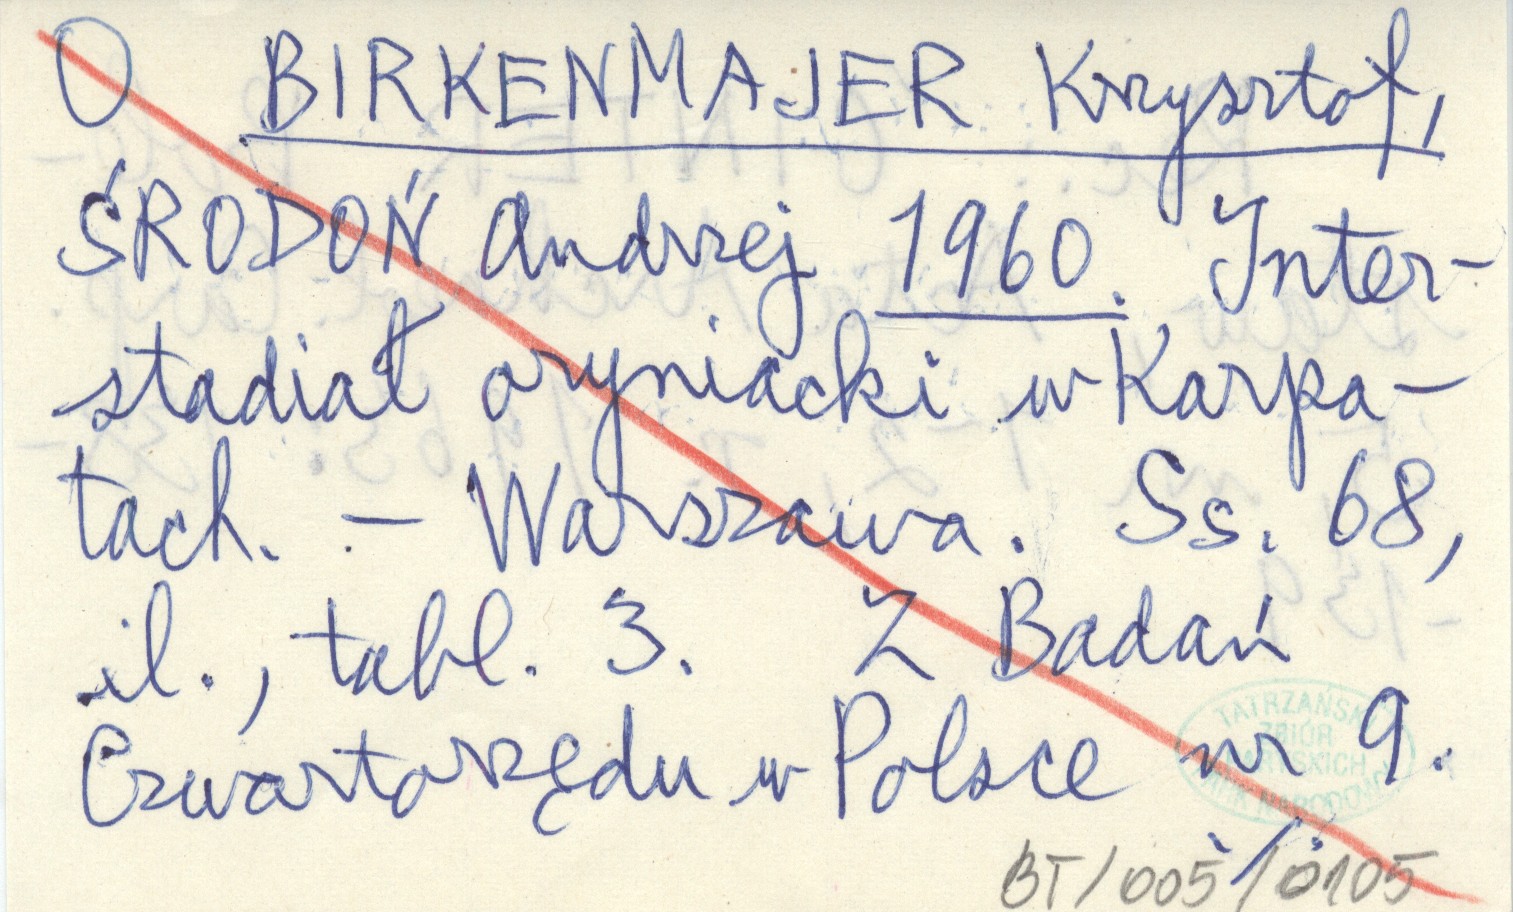 O BIRKENMAJER Krzysztof,
ŚRODOŃ Andrzej 1960. Inter-
stadiał oryniacki w Karpa-
tach. - Warszawa. Ss. 68,
il., tabl. 3. Z Badań
Czwartorzędu w Polsce nr 9.
TATRZAŃSKI
ZBIÓR
PARYSKICH
PARK NARODOWY
BT/005/0105